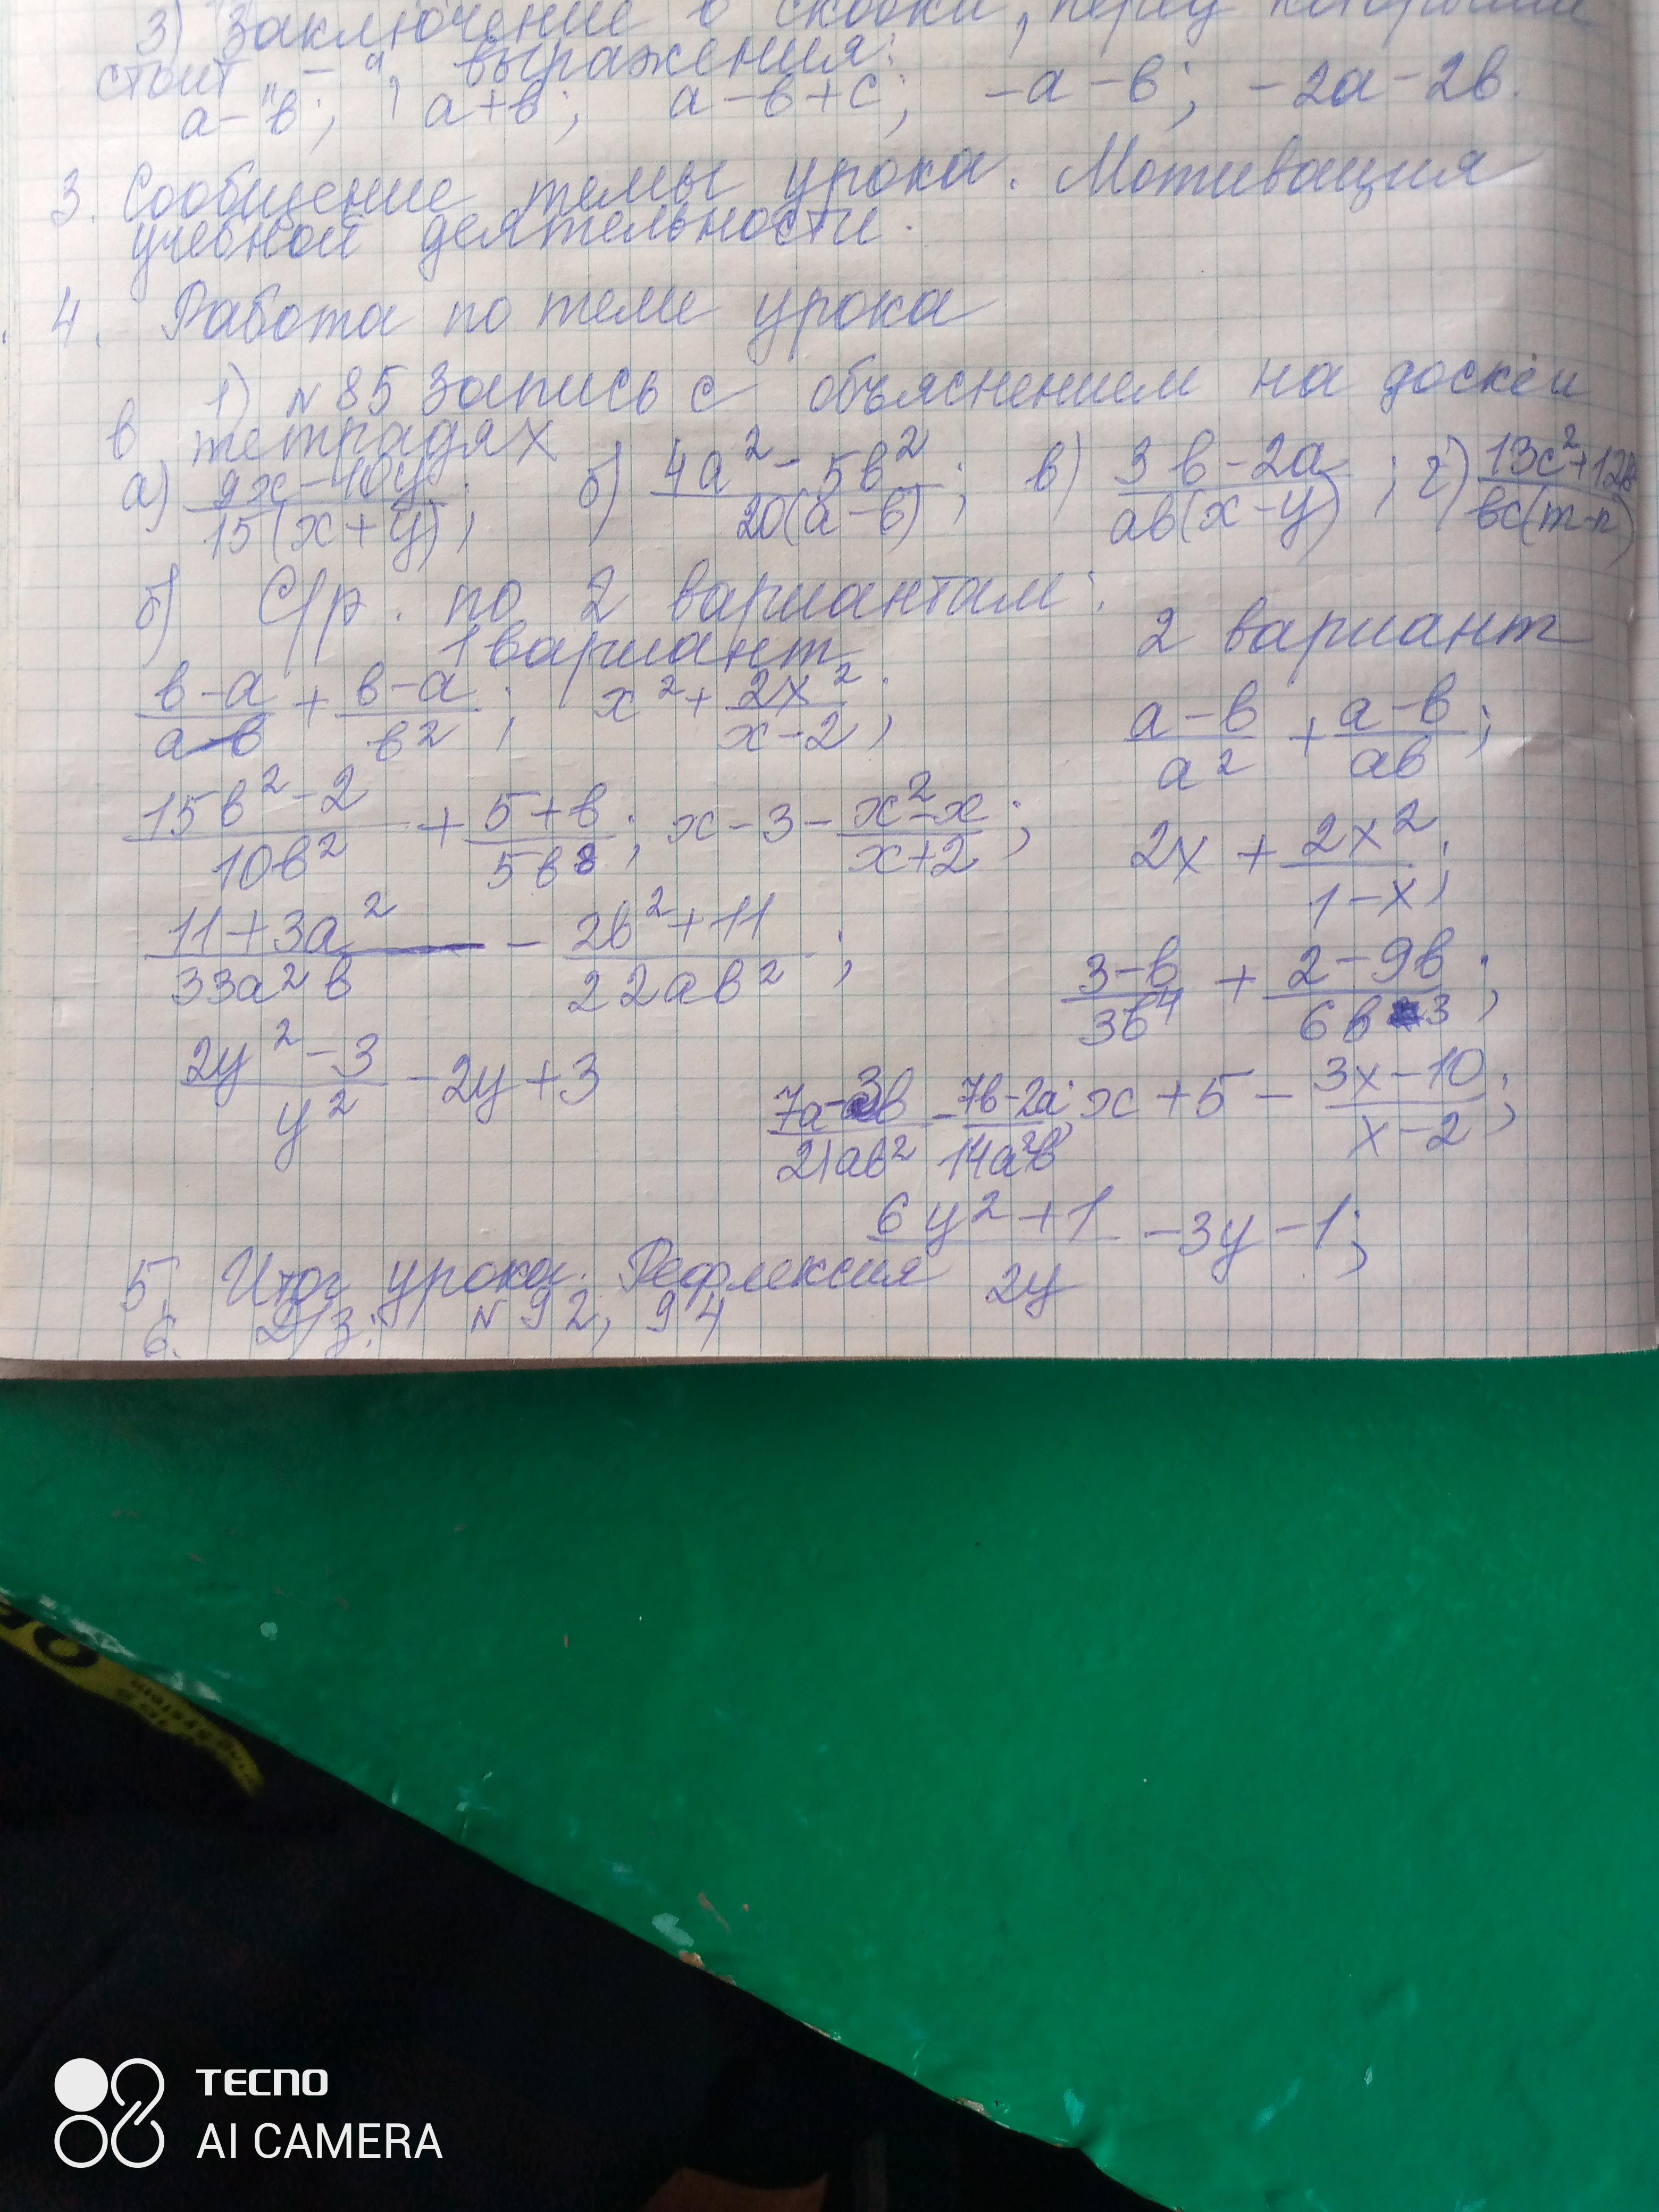 3) Заключение в скобки, перед которыми
стоит "-", выражения:
а-в; а+в; а-в+с; -а-в; -2а-2в.
3. Сообщение темы урока. Мотивация
учебной деятельности.
4. Работа по теме урока
1) N85 Запись с объяснением на доске и
в тетрадях
а) (9x-10y)/(15(x+y)); б) (4а²-5в²)/(20(а-в)); в) (3в-2а)/(ав(x-y)); г) (13с²+12в)/(вс(m-n))
б) С/р. по 2 вариантам:
1 вариант
2 вариант
(в-а)/(ав) + (в-а)/в²; x² + 2x²/(x-2);
(15в²-2)/(10в²) + (5+в)/(5в³); x-3-(x²-x)/(x+2);
(11+3а²)/(33а²в) - (2в²+11)/(22ав²);
(2y²-3)/y² -2y+3
(а-в)/а² + (а-в)/(ав);
2x + 2x²/(1-x);
(3-в)/(3в⁴) + (2-9в)/(6в³);
(7а-3в)/(21ав²) - (7в-2а)/(14а²в); x+5-(3x-10)/(x-2);
(6y²+1)/(2y) -3y-1;
5. Итог урока. Рефлексия
6. Д/з: N92, 94
TECNO
AI CAMERA